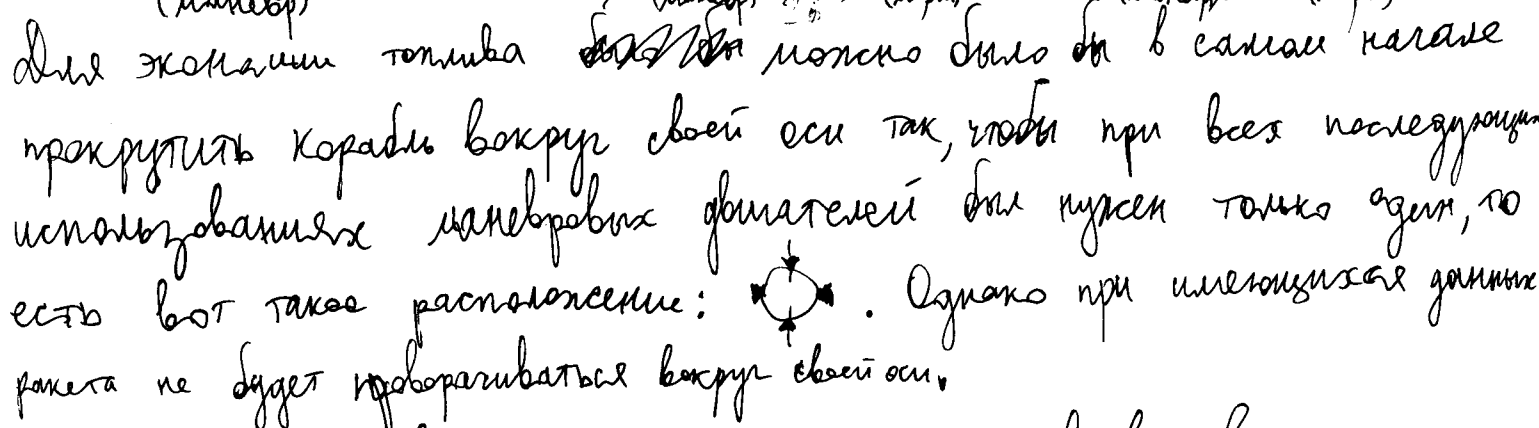 (манёвр)
Для экономии топлива можно было бы в самом начале
прокрутить корабль вокруг своей оси так, чтобы при всех последующих
использованиях маневровых двигателей был нужен только один, то
есть вот такое расположение: . Однако при имеющихся данных
ракета не будет проворачиваться вокруг своей оси.